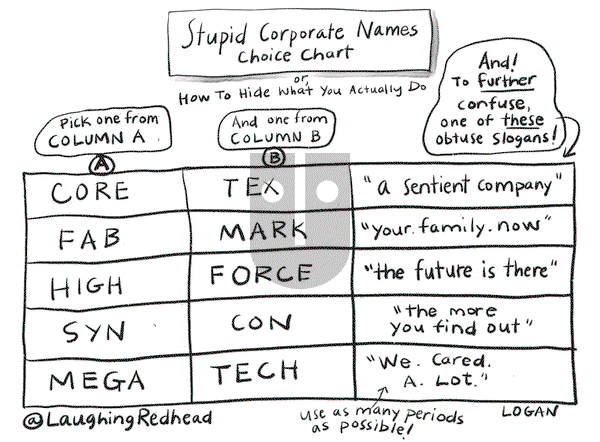 Stupid Corporate Names
Choice Chart
or,
How To Hide What You Actually Do
And!
To further
confuse,
one of these
obtuse slogans!
Pick one from
COLUMN A
And one from
COLUMN B
A
B
CORE
TEX
"a sentient company"
FAB
MARK
"your.family.now"
HIGH
FORCE
"the future is there"
SYN
CON
"the more
you find out"
MEGA
TECH
"We. Cared.
A. Lot."
@LaughingRedhead
use as many periods
as possible!
LOGAN